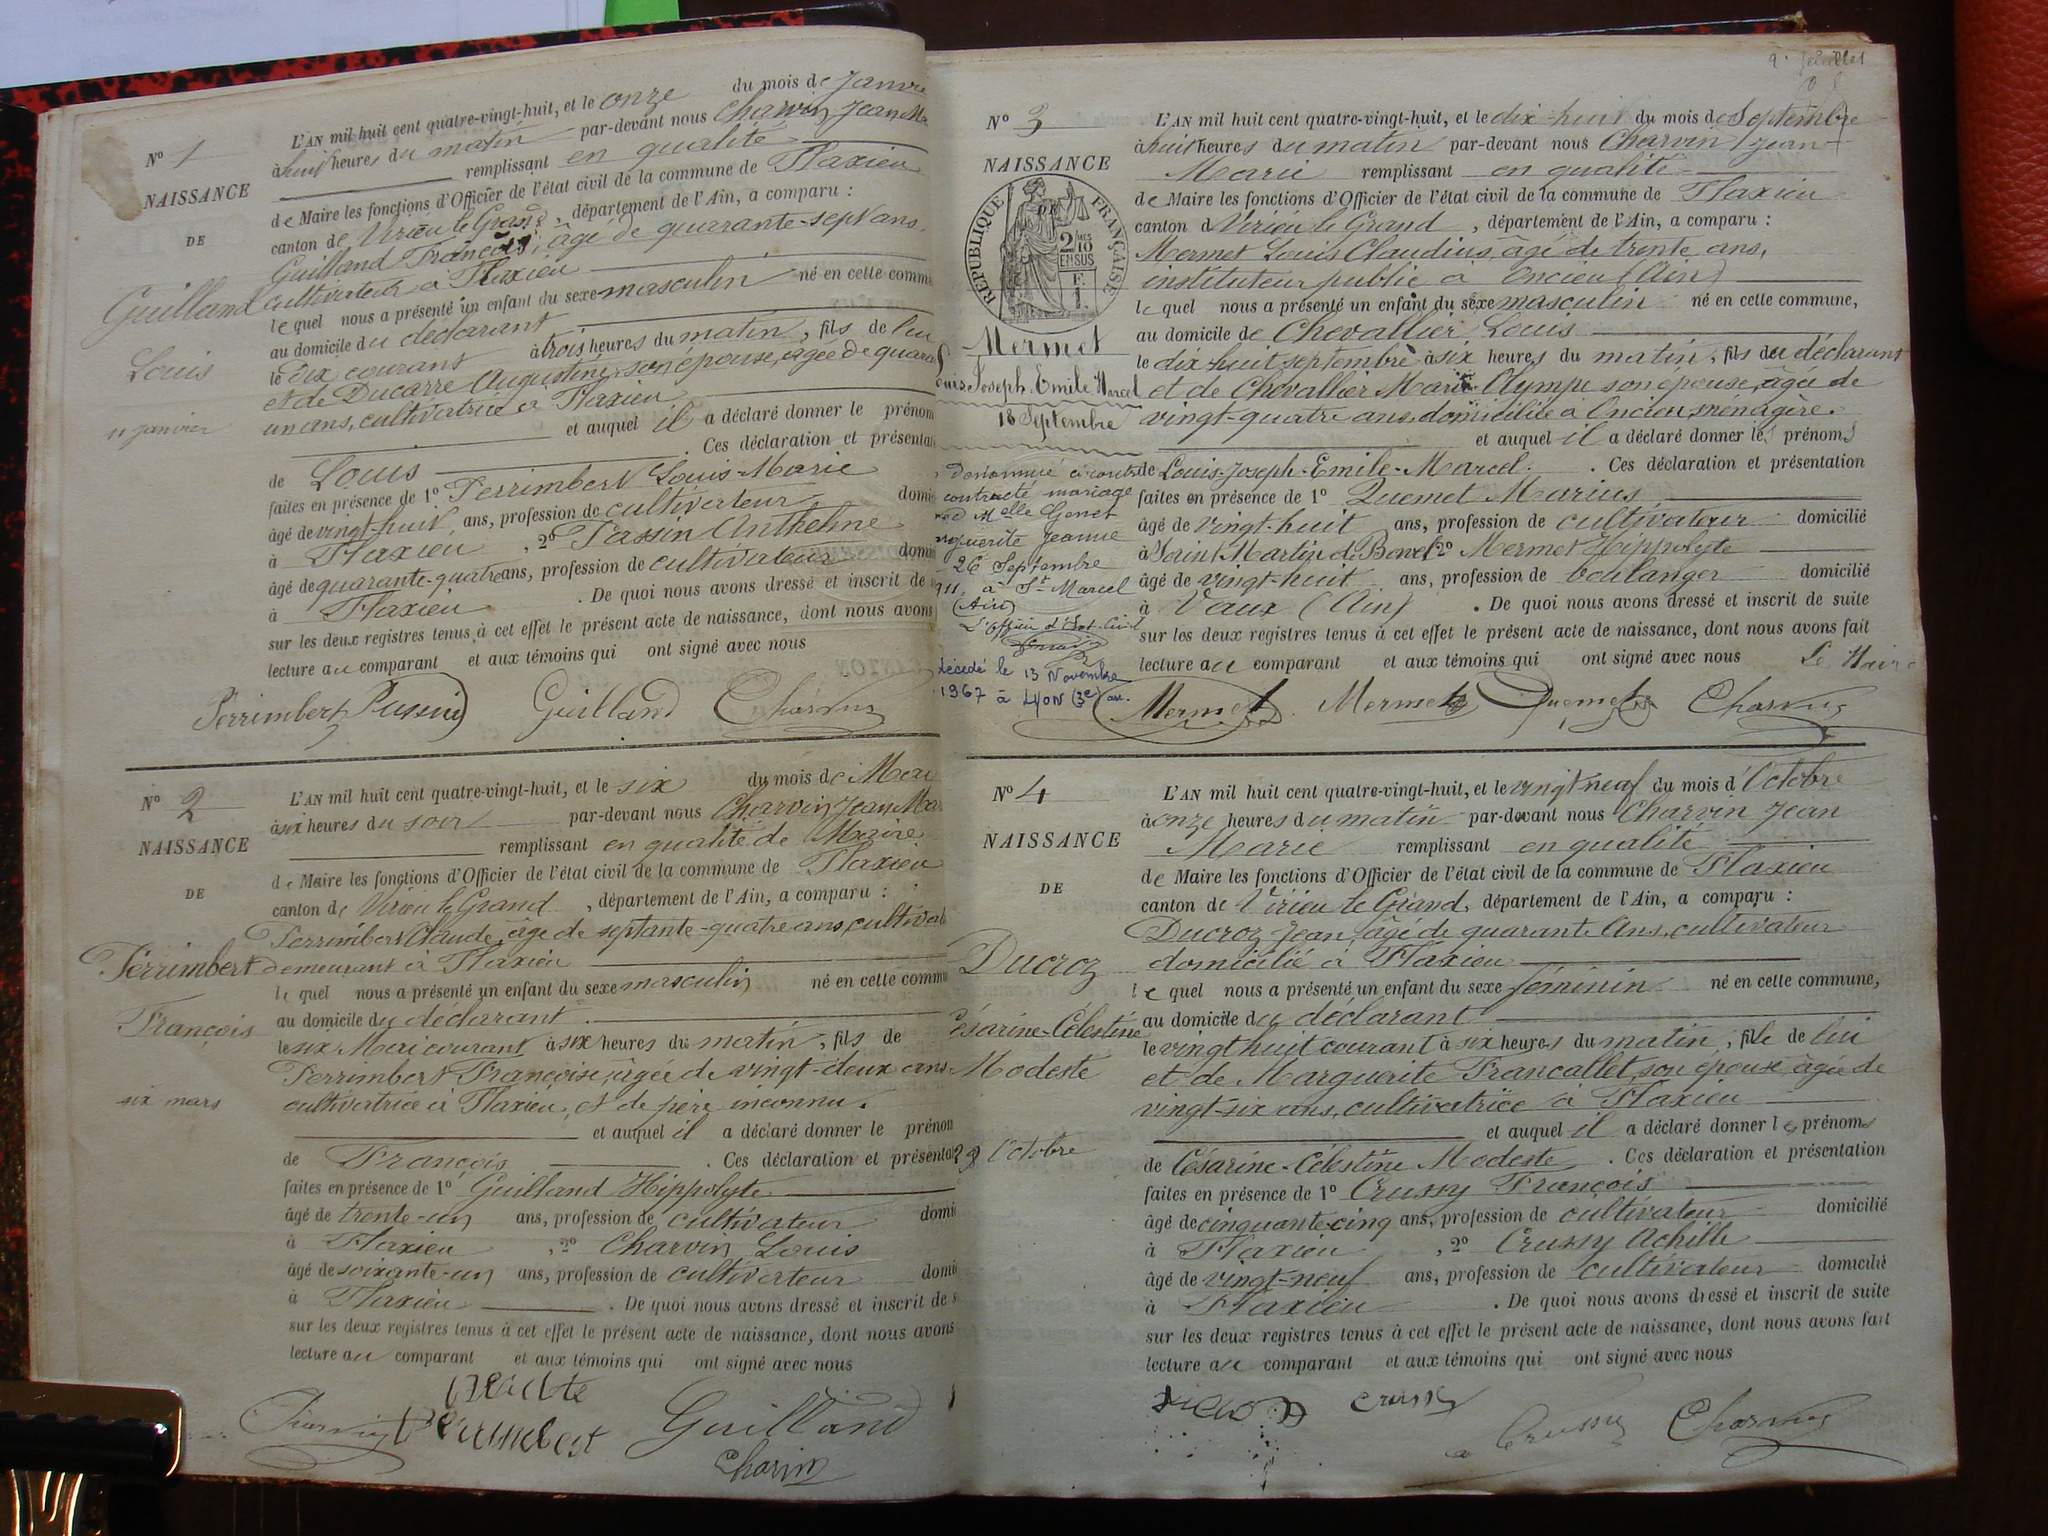 N° 1
NAISSANCE
DE
Guilland
Louis
11 janvier
L'AN mil huit cent quatre-vingt-huit, et le onze du mois de Janvie
à huit heures du matin par-devant nous Charvin Jean Ma
remplissant en qualité
de Maire les fonctions d'Officier de l'état civil de la commune de Flaxieu
canton de Virieu le Grand, département de l'Ain, a comparu :
Guilland François, âgé de quarante-sept ans,
cultivateur à Flaxieu
le quel nous a présenté un enfant du sexe masculin né en cette commu
au domicile du déclarant
le dix courant à trois heures du matin, fils de lui
et de Ducarre Augustine son épouse, âgée de quara
un ans, cultivatrice à Flaxieu
et auquel il a déclaré donner le prénom
de Louis . Ces déclaration et présentat
faites en présence de 1° Perrimbert Louis-Marie
âgé de vingt-huit ans, profession de cultivateur domi
à Flaxieu, 2° Passin Anthelme
âgé de quarante-quatre ans, profession de cultivateur domi
à Flaxieu . De quoi nous avons dressé et inscrit de
sur les deux registres tenus à cet effet le présent acte de naissance, dont nous avons
lecture au comparant et aux témoins qui ont signé avec nous
Perrimbert Passin Guilland Charvin
N° 2
NAISSANCE
DE
Perrimbert
François
six mars
L'AN mil huit cent quatre-vingt-huit, et le six du mois de Mar
à six heures du soir par-devant nous Charvin Jean Mar
remplissant en qualité de Maire
de Maire les fonctions d'Officier de l'état civil de la commune de Flaxieu
canton de Virieu le Grand, département de l'Ain, a comparu :
Perrimbert Claude, âgé de septante-quatre ans, cultivat
demeurant à Flaxieu
le quel nous a présenté un enfant du sexe masculin né en cette commu
au domicile du déclarant.
le six courant à six heures du matin, fils de
Perrimbert Françoise, âgée de vingt-deux ans
cultivatrice à Flaxieu, et de père inconnu.
et auquel il a déclaré donner le prénom
de François . Ces déclaration et présentat
faites en présence de 1° Guilland Hippolyte
âgé de trente-un ans, profession de cultivateur domi
à Flaxieu, 2° Charvin Louis
âgé de soixante-un ans, profession de cultivateur domi
à Flaxieu . De quoi nous avons dressé et inscrit de s
sur les deux registres tenus à cet effet le présent acte de naissance, dont nous avons
lecture au comparant et aux témoins qui ont signé avec nous
Charvin Perrimbert Guilland
Charvin
N° 3
NAISSANCE
DE
RÉPUBLIQUE FRANÇAISE
2/10 EN SUS
Mermet
Louis Joseph Emile Marcel
18 Septembre
Dénommé ci contre
contracté mariage
Melle Genet
Jeanne
26 Septembre
911, à St Marcel
(Ain)
L'Officier d'Etat-Civil
décédé le 13 Novembre
1967 à LYON (3e) arr.
L'AN mil huit cent quatre-vingt-huit, et le dix-huit du mois de Septembre
à huit heures du matin par-devant nous Charvin Jean-
Marie remplissant en qualité
de Maire les fonctions d'Officier de l'état civil de la commune de Flaxieu
canton d Virieu le Grand, département de l'Ain, a comparu :
Mermet Louis Claudius, âgé de trente ans,
instituteur public à Oncieu (Ain)
le quel nous a présenté un enfant du sexe masculin né en cette commune,
au domicile de Chevallier Louis
le dix-huit septembre à six heures du matin, fils du déclarant
et de Chevallier Marie-Olympe son épouse, âgée de
vingt-quatre ans, domiciliée à Oncieu, ménagère.
et auquel il a déclaré donner les prénoms
de Louis-Joseph-Emile-Marcel. . Ces déclaration et présentation
faites en présence de 1° Quemet Marius
âgé de vingt-huit ans, profession de cultivateur domicilié
à Saint Martin de Bavel 2° Mermet Hippolyte
âgé de vingt-huit ans, profession de boulanger domicilié
à Vaux (Ain) . De quoi nous avons dressé et inscrit de suite
sur les deux registres tenus à cet effet le présent acte de naissance, dont nous avons fait
lecture au comparant et aux témoins qui ont signé avec nous Le Maire
Mermet Mermet Quemet Charvin
N° 4
NAISSANCE
DE
Ducroz
Césarine-Célestine
Modeste
29 Octobre
L'AN mil huit cent quatre-vingt-huit, et le vingt neuf du mois d'Octobre
à onze heures du matin par-devant nous Charvin Jean
Marie remplissant en qualité
de Maire les fonctions d'Officier de l'état civil de la commune de Flaxieu
canton de Virieu le Grand, département de l'Ain, a comparu :
Ducroz Jean, âgé de quarante ans, cultivateur
domicilié à Flaxieu
le quel nous a présenté un enfant du sexe féminin né en cette commune,
au domicile du déclarant
le vingt huit courant à six heures du matin, fille de lui
et de Marguerite Francallet, son épouse âgée de
vingt-six ans, cultivatrice à Flaxieu
et auquel il a déclaré donner les prénoms
de Césarine-Célestine Modeste . Ces déclaration et présentation
faites en présence de 1° Crussy François
âgé de cinquante-cinq ans, profession de cultivateur domicilié
à Flaxieu, 2° Crussy Achille
âgé de vingt-neuf ans, profession de cultivateur domicilié
à Flaxieu . De quoi nous avons dressé et inscrit de suite
sur les deux registres tenus à cet effet le présent acte de naissance, dont nous avons fait
lecture au comparant et aux témoins qui ont signé avec nous
Crussy
a Crussy Charvin